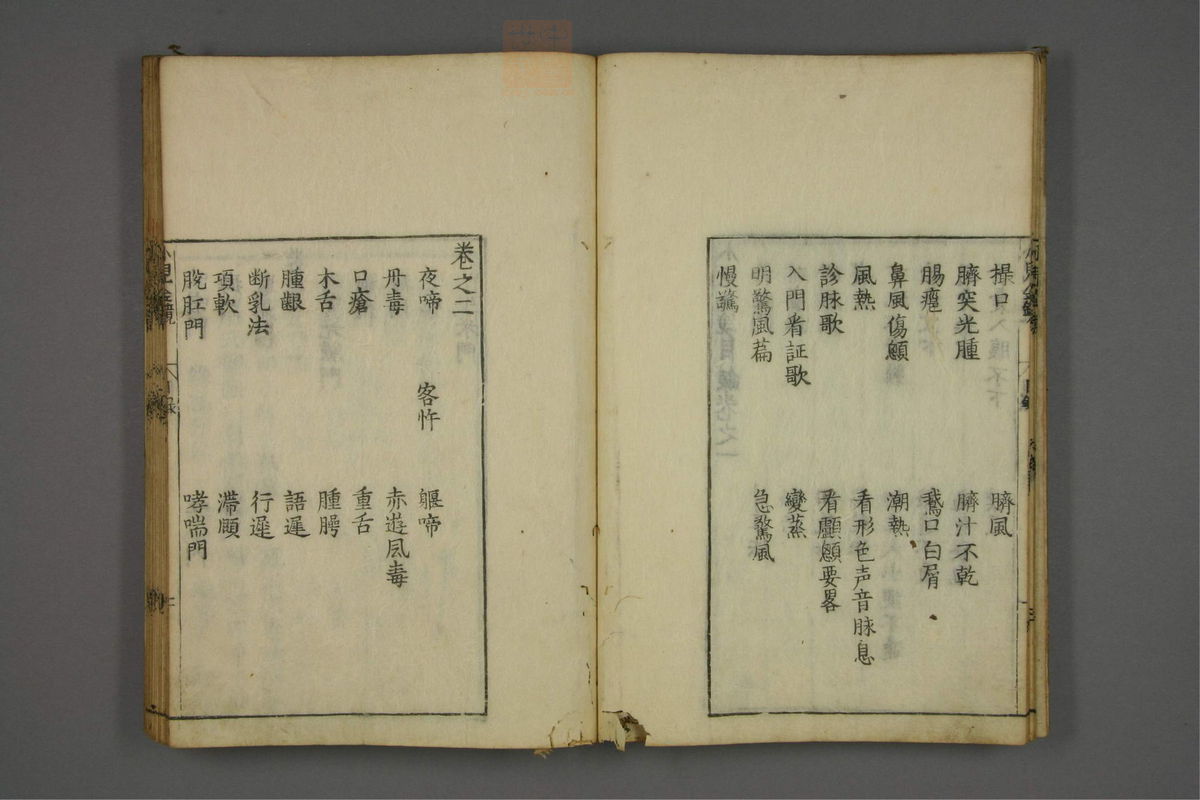 撮口 臍風
臍突光腫 臍汁不乾
腸㿗 鵞口白屑
鼻風傷顖 潮熱
風熱 看形色声音脉息
診脉歌 看顱顖要畧
入門看証歌 變蒸
明驚風萹 急驚風
慢驚
卷之二
夜啼 客忤 軀啼
丹毒 赤遊風毒
口瘡 重舌
木舌 腫腭
腫齦 語遲
断乳法 行遲
項軟 滯頥
脫肛門 哮喘門